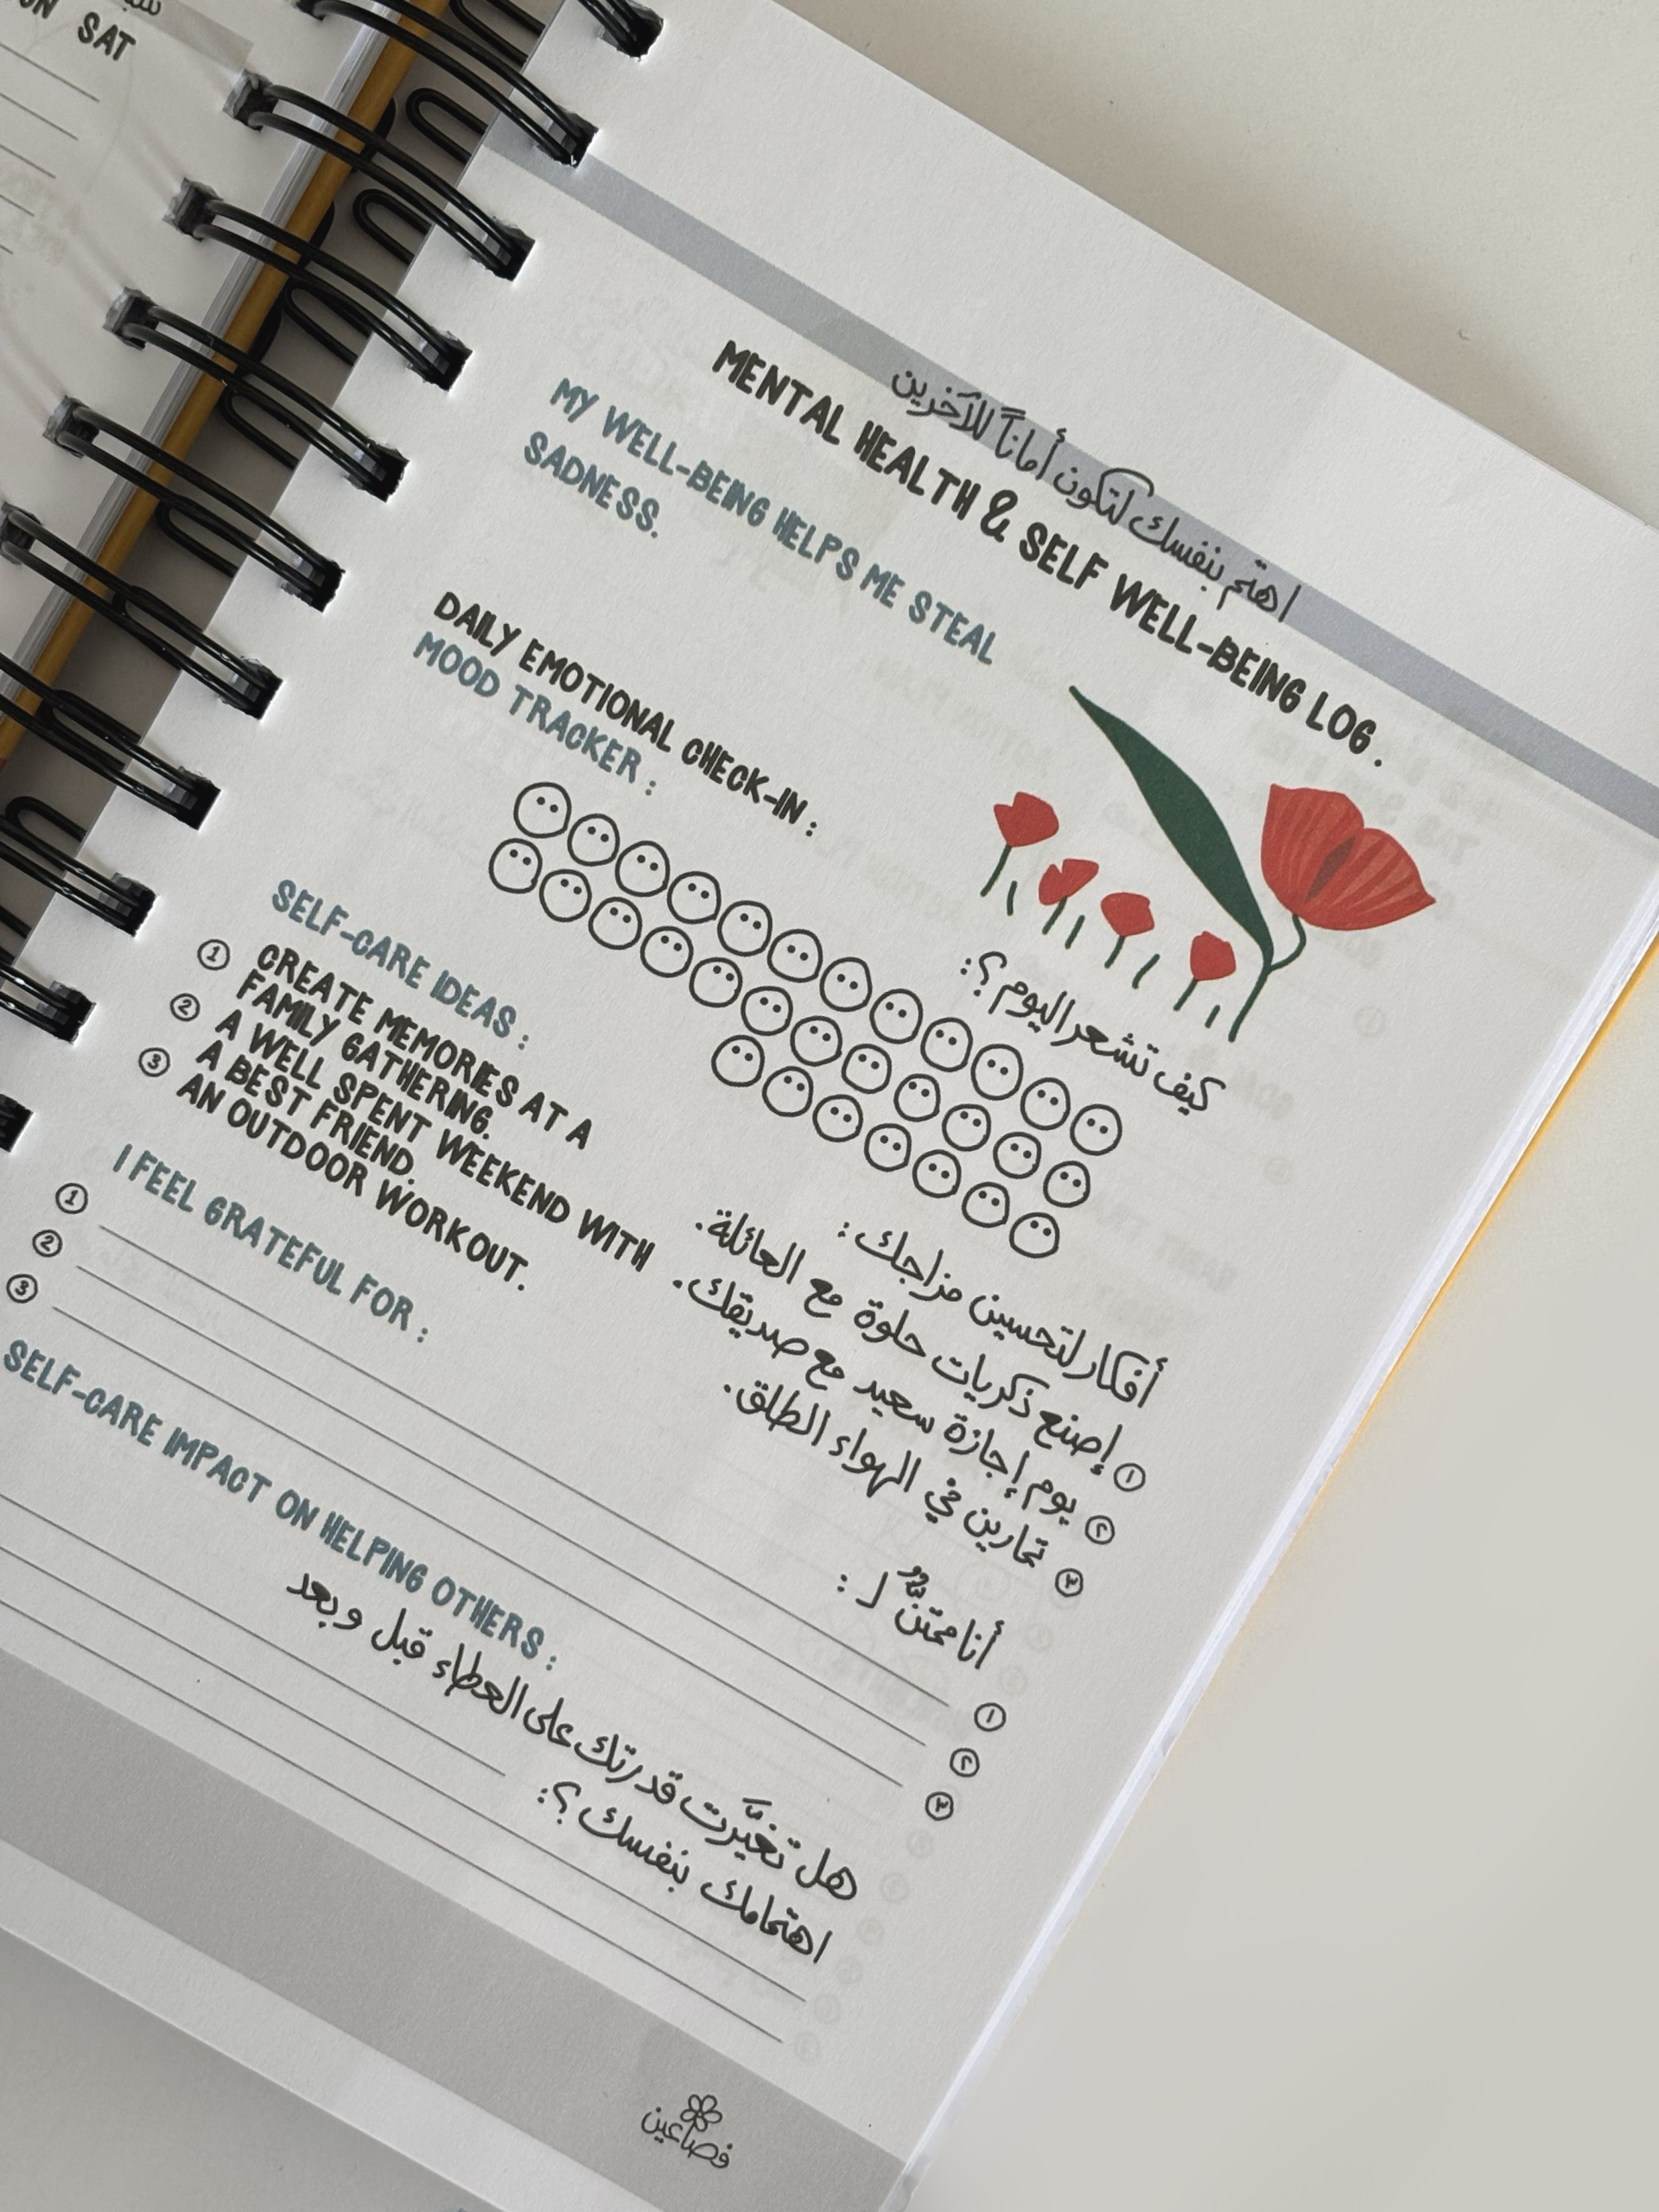 SAT
اهتم بنفسك لتكون أماناً للآخرين
MENTAL HEALTH & SELF WELL-BEING LOG.
MY WELL-BEING HELPS ME STEAL
SADNESS.
DAILY EMOTIONAL CHECK-IN :
MOOD TRACKER :
كيف تشعر اليوم؟:
SELF-CARE IDEAS :
① CREATE MEMORIES AT A
FAMILY GATHERING.
② A WELL SPENT WEEKEND WITH
A BEST FRIEND.
③ AN OUTDOOR WORKOUT.
أفكار لتحسين مزاجك :
① إصنع ذكريات حلوة مع العائلة.
② يوم إجازة سعيد مع صديقك.
③ تمارين في الهواء الطلق.
I FEEL GRATEFUL FOR :
أنا ممتنٌّ لـ :
① ١
② ٢
③ ٣
SELF-CARE IMPACT ON HELPING OTHERS :
هل تغيَّرت قدرتك على العطاء قبل وبعد
اهتمامك بنفسك؟:
فصاعين